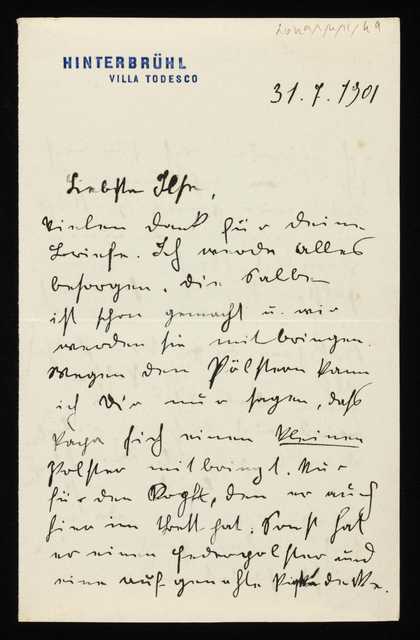 HINTERBRÜHL
VILLA TODESCO
31. 7. 1901
Liebste Ilse,
vielen Dank für deine
Briefe. Ich werde alles
besorgen, die Salbe
ist schon gemacht u. wir
werden sie mitbringen.
Wegen den Pölstern kann
ich Dir nur sagen, daß
Papa sich einen kleinen
Polster mitbringt. Nur
für den Kopf, den er auch
hier im Bett hat. Sonst hat
er einen Federpolster und
eine aufgenähte Decke.